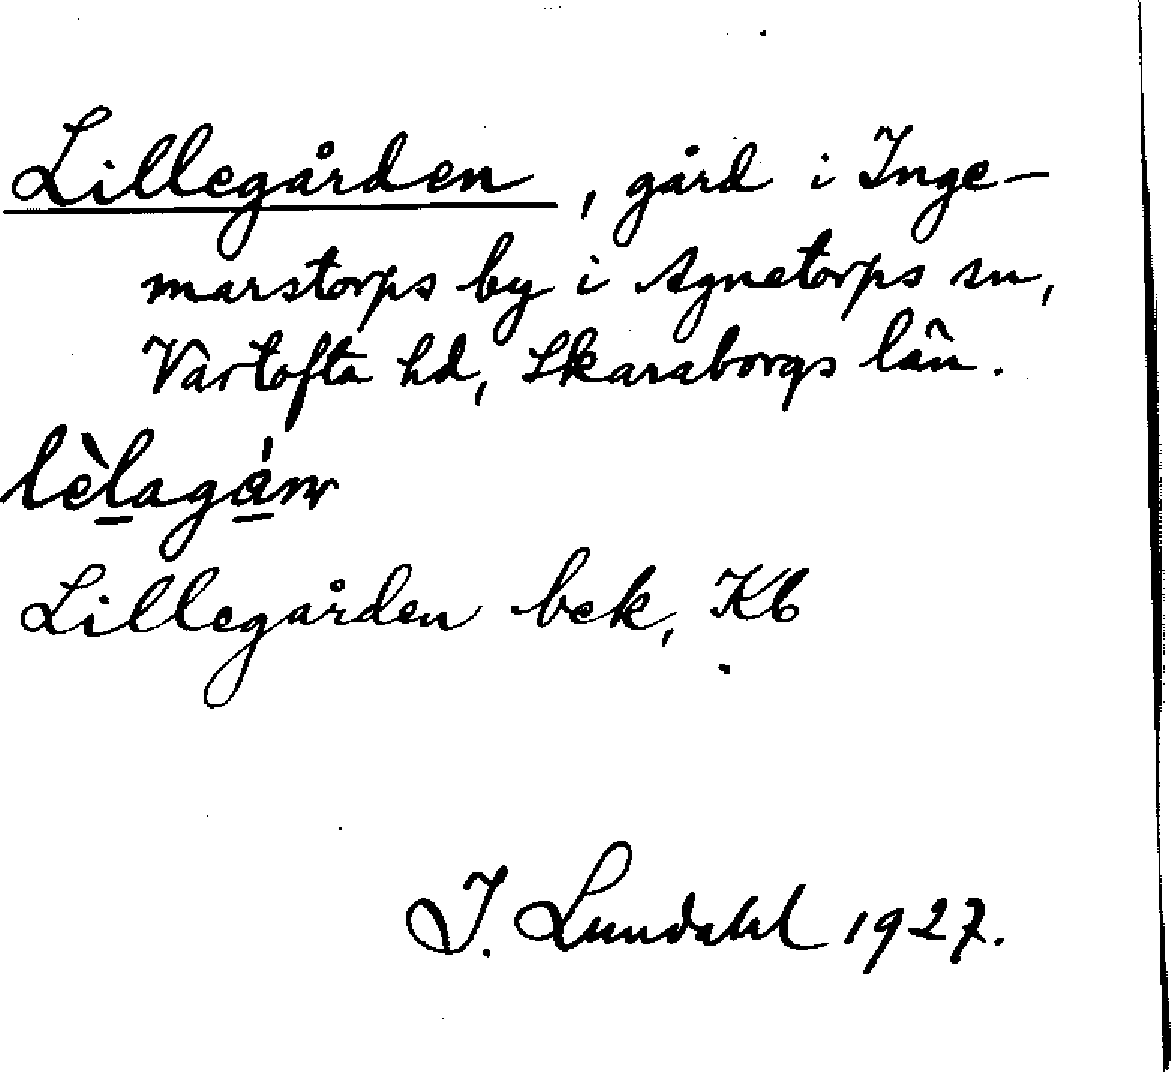 Lillegården, gård i Inge-
marstorps by i Agnetorps sn,
Vartofta hd, Skaraborgs län.
lèlagánr
Lillegården bek, Kb
J. Lundahl 1927.